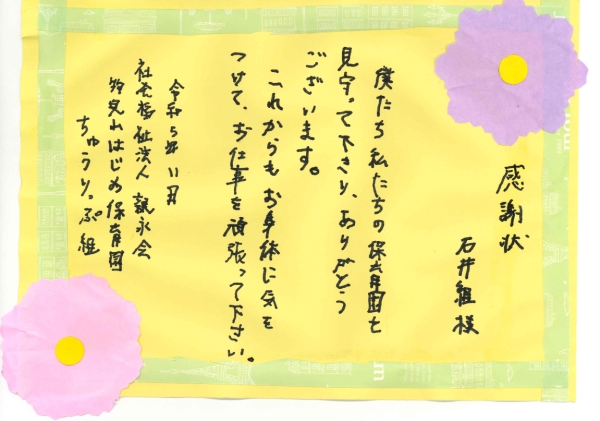 感謝状
石井組様
僕たち私たちの保育園を
見守って下さり、ありがとう
ございます。
これからもお身体に気を
つけて、お仕事を頑張って下さい。
令和5年11月
社会福祉法人 親永会
はじめ保育園
ちゅうりっぷ組